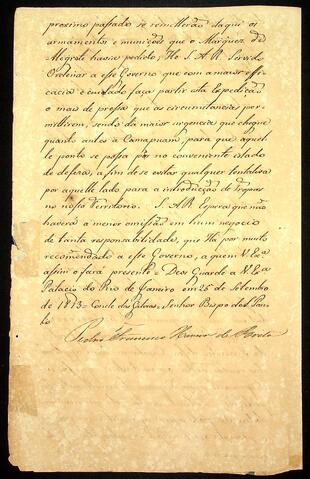 proximo passado se remetterão daqui os
armamentos e munições que o Marquez de
Alegrete havia pedido, He S. A. R. Servido
Ordenar a esse Governo que com a maior effi-
cacia e cuidado faça partir esta expedição
o mais depressa que as circunstancias per-
mittirem, sendo da maior urgencia que chegue
quanto antes a Camapuam, para que aquel-
le ponto se possa pôr no conveniente estado
de defeza, a fim de se evitar qualquer tentativa
por aquelle lado para a introducção de Tropas
no nosso Territorio. S. A. R. Espera que não
haverá a menor omissão em hum negocio
de tanta responsabilidade, que Há por muito
recomendado a esse Governo, a quem V. Exª
assim o fará presente = Deos Guarde a V. Exª
Palacio do Rio de Janeiro em 25 de Setembro
de 1813 = Conde das Galveas = Senhor Bispo de S. Pau-
lo
Francisco de